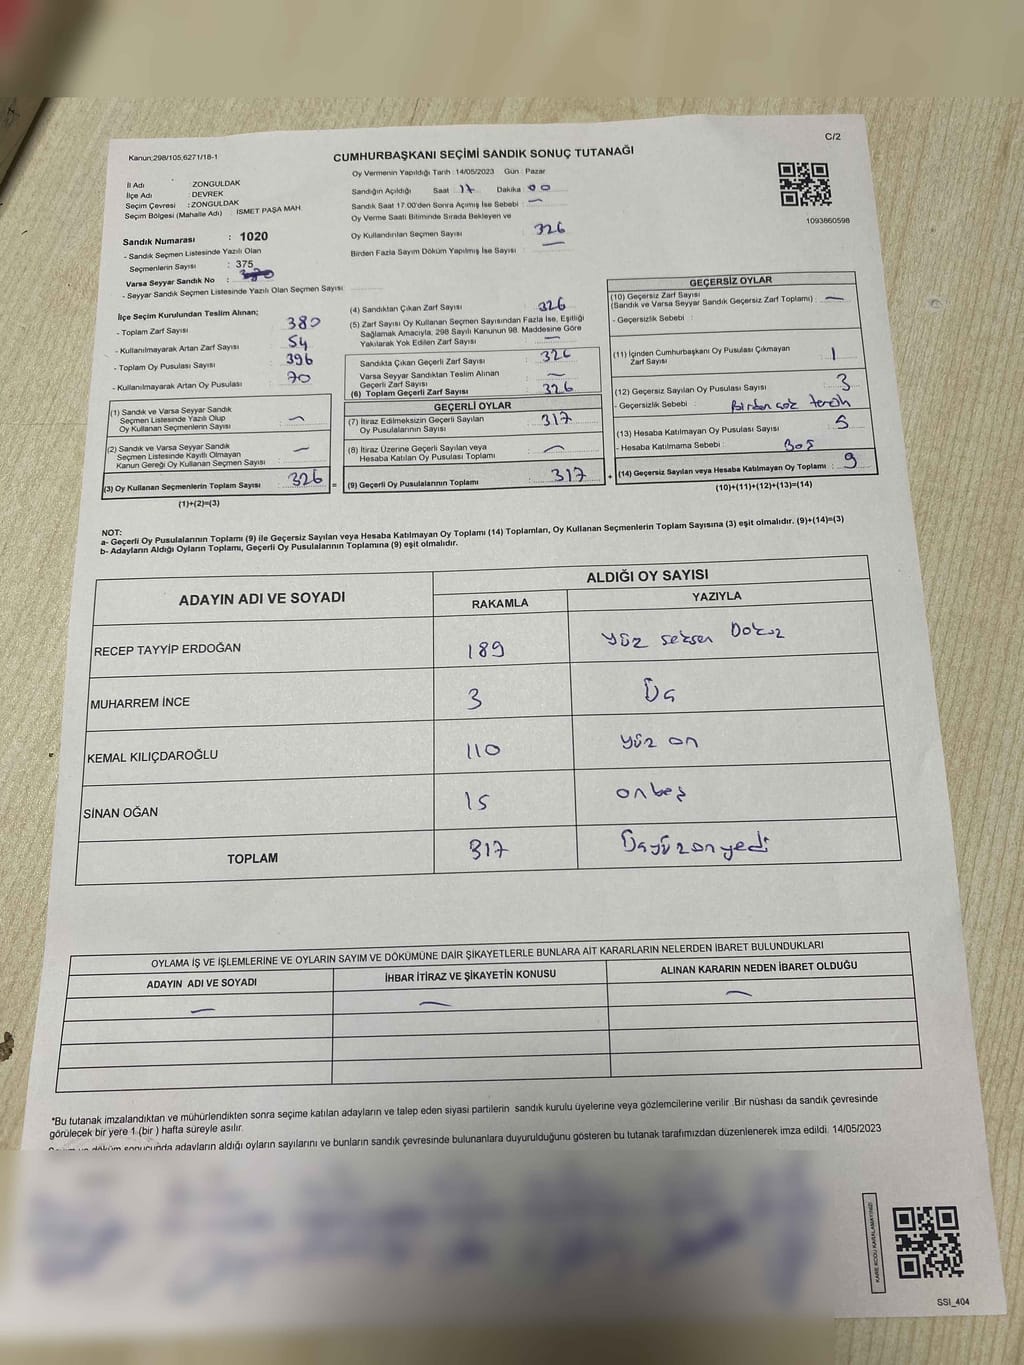 C/2
Kanun;298/105;6271/18-1
CUMHURBAŞKANI SEÇİMİ SANDIK SONUÇ TUTANAĞI
İl Adı : ZONGULDAK
İlçe Adı : DEVREK
Seçim Çevresi : ZONGULDAK
Seçim Bölgesi (Mahalle Adı) : İSMET PAŞA MAH.
Sandık Numarası : 1020
- Sandık Seçmen Listesinde Yazılı Olan
Seçmenlerin Sayısı : 375
Varsa Seyyar Sandık No :
- Seyyar Sandık Seçmen Listesinde Yazılı Olan Seçmen Sayısı:
Oy Vermenin Yapıldığı Tarih : 14/05/2023 Gün : Pazar
Sandığın Açıldığı Saat 17 Dakika 00
Sandık Saat 17:00'den Sonra Açımış İse Sebebi : —
Oy Verme Saati Bitiminde Sırada Bekleyen ve
Oy Kullandırılan Seçmen Sayısı 326
Birden Fazla Sayım Döküm Yapılmış İse Sayısı : —
1093860598
İlçe Seçim Kurulundan Teslim Alınan;
- Toplam Zarf Sayısı 380
- Kullanılmayarak Artan Zarf Sayısı 54
- Toplam Oy Pusulası 396
- Kullanılmayarak Artan Oy Pusulası 70
(1) Sandık ve Varsa Seyyar Sandık
Seçmen Listesinde Yazılı Olup
Oy Kullanan Seçmenlerin Sayısı : —
(2) Sandık ve Varsa Seyyar Sandık
Seçmen Listesinde Kayıtlı Olmayan
Kanun Gereği Oy Kullanan Seçmen Sayısı : —
(3) Oy Kullanan Seçmenlerin Toplam Sayısı : 326 =
(1)+(2)=(3)
(4) Sandıktan Çıkan Zarf Sayısı : 326
(5) Zarf Sayısı Oy Kullanan Seçmen Sayısından Fazla İse, Eşitliği
Sağlamak Amacıyla; 298 Sayılı Kanunun 98. Maddesine Göre
Yakılarak Yok Edilen Zarf Sayısı : —
Sandıkta Çıkan Geçerli Zarf Sayısı : 326
Varsa Seyyar Sandıktan Teslim Alınan
Geçerli Zarf Sayısı : —
(6) Toplam Geçerli Zarf Sayısı : 326
GEÇERLİ OYLAR
(7) İtiraz Edilmeksizin Geçerli Sayılan
Oy Pusulalarının Sayısı : 317
(8) İtiraz Üzerine Geçerli Sayılan veya
Hesaba Katılan Oy Pusulası Toplamı : —
(9) Geçerli Oy Pusulalarının Toplamı : 317 +
GEÇERSİZ OYLAR
(10) Geçersiz Zarf Sayısı
(Sandık ve Varsa Seyyar Sandık Geçersiz Zarf Toplamı) : —
- Geçersizlik Sebebi :
(11) İçinden Cumhurbaşkanı Oy Pusulası Çıkmayan
Zarf Sayısı : 1
(12) Geçersiz Sayılan Oy Pusulası Sayısı : 3
- Geçersizlik Sebebi : Birden çok tercih
(13) Hesaba Katılmayan Oy Pusulası Sayısı : 5
- Hesaba Katılmama Sebebi : Boş
(14) Geçersiz Sayılan veya Hesaba Katılmayan Oy Toplamı : 9
(10)+(11)+(12)+(13)=(14)
NOT:
a- Geçerli Oy Pusulalarının Toplamı (9) ile Geçersiz Sayılan veya Hesaba Katılmayan Oy Toplamı (14) Toplamları, Oy Kullanan Seçmenlerin Toplam Sayısına (3) eşit olmalıdır. (9)+(14)=(3)
b- Adayların Aldığı Oyların Toplamı, Geçerli Oy Pusulalarının Toplamına (9) eşit olmalıdır.
ADAYIN ADI VE SOYADI ALDIĞI OY SAYISI
RAKAMLA YAZIYLA
RECEP TAYYİP ERDOĞAN 189 Yüz seksen Dokuz
MUHARREM İNCE 3 Üç
KEMAL KILIÇDAROĞLU 110 Yüz on
SİNAN OĞAN 15 onbeş
TOPLAM 317 Üçyüzonyedi
OYLAMA İŞ VE İŞLEMLERİNE VE OYLARIN SAYIM VE DÖKÜMÜNE DAİR ŞİKAYETLERLE BUNLARA AİT KARARLARIN NELERDEN İBARET BULUNDUKLARI
ADAYIN ADI VE SOYADI İHBAR İTİRAZ VE ŞİKAYETİN KONUSU ALINAN KARARIN NEDEN İBARET OLDUĞU
— — —
*Bu tutanak imzalandıktan ve mühürlendikten sonra seçime katılan adayların ve talep eden siyasi partilerin sandık kurulu üyelerine veya gözlemcilerine verilir .Bir nüshası da sandık çevresinde
görülecek bir yere 1 (bir ) hafta süreyle asılır.
döküm sonucunda adayların aldığı oyların sayılarını ve bunların sandık çevresinde bulunanlara duyurulduğunu gösteren bu tutanak tarafımızdan düzenlenerek imza edildi. 14/05/2023
KARE KODU KARALAMAYINIZ!
SSI_404